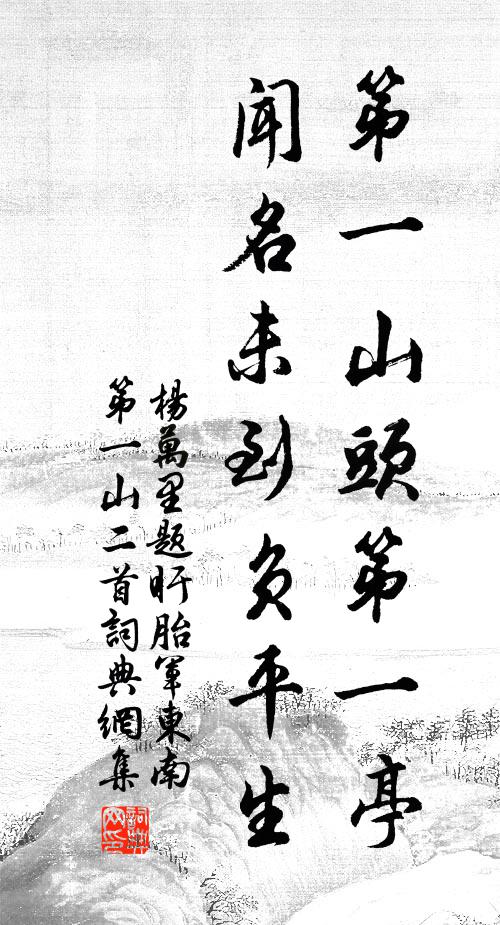 第一山頭第一亭
聞名未到負平生
楊萬里題盱眙軍東南
第一山二首詞典網集